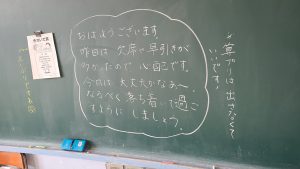 おはようございます
昨日は欠席や早引きが
多かったので心配です。
今日は大丈夫かなぁ〜。
なるべく落ち着いて過ご
すようにしましょう。
プリは出さなくて
いいです！